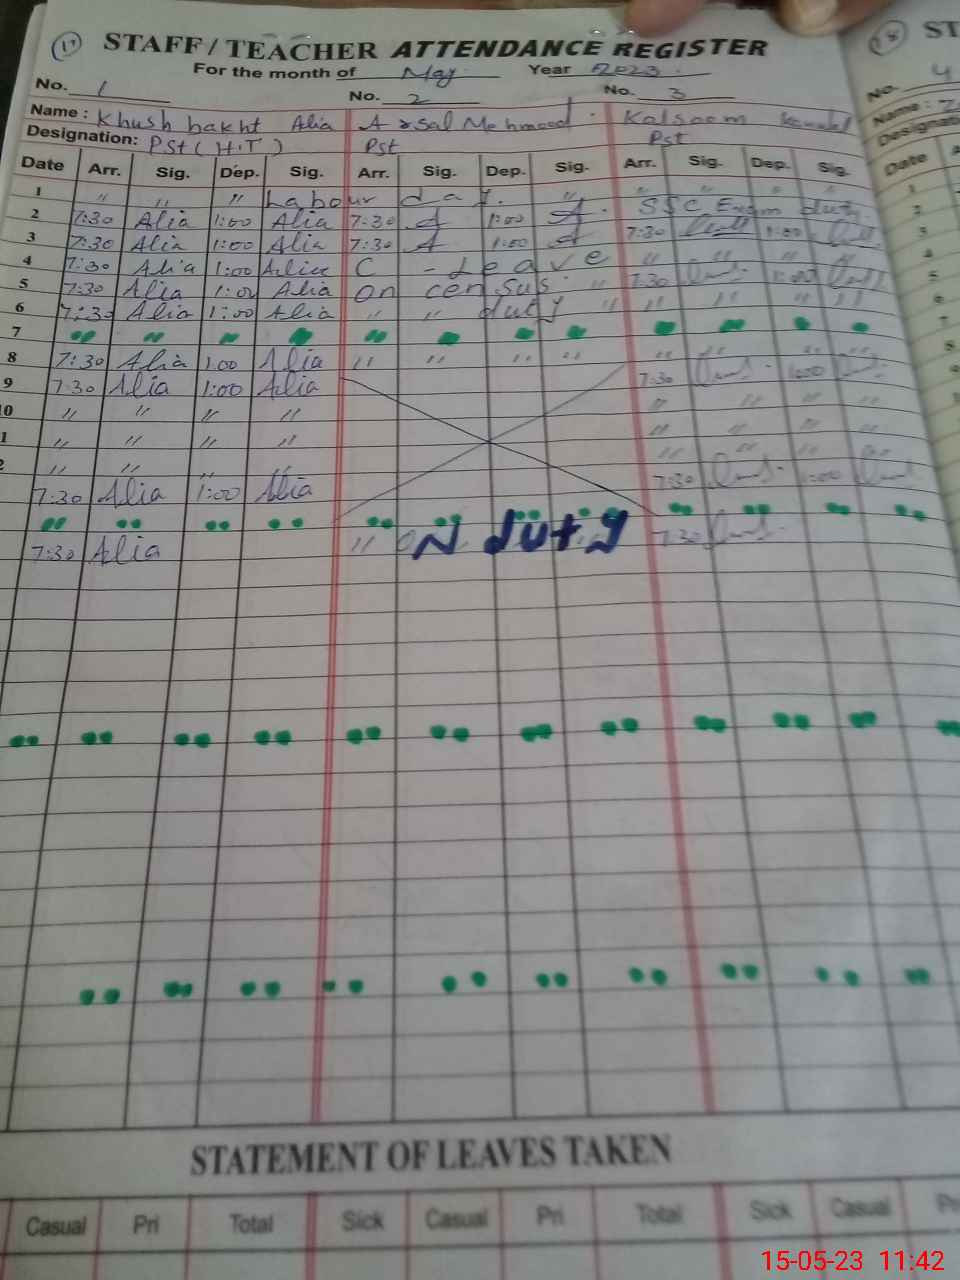 17 STAFF / TEACHER ATTENDANCE REGISTER
For the month of May Year 2023
No. 1 No. 2 No. 3
Name : Khush bakht Alia Arsal Mehmood Kalsoom
Designation: PSt (H.T) Pst Pst
Date Arr. Sig. Dep. Sig. Arr. Sig. Dep. Sig. Arr. Sig. Dep. Sig.
1 " " " Labour day. " " " " "
2 7:30 Alia 1:00 Alia 7:30 A 1:00 A SSC Exam duty.
3 7:30 Alia 1:00 Alia 7:30 A 1:00 A 7:30 1:00
4 7:30 Alia 1:00 Alia C - Leave " " " "
5 7:30 Alia 1:00 Alia on census " 7:30 1:00
6 7:30 Alia 1:00 Alia " " duty " " " " "
7 " " "
8 7:30 Alia 1:00 Alia " " " " " " " "
9 7:30 Alia 1:00 Alia 7:30 1:00
10 " " " " " " " "
1 " " " " " " " "
2 " " " " " " " "
7:30 Alia 1:00 Alia 7:30 1:00
7:30 Alia " ON duty 7:30
STATEMENT OF LEAVES TAKEN
Casual Pri Total Sick Casual Pri Total Sick Casual
18 ST
No. 4
Name :
Date
1
2
3
4
5
6
7
8
9
15-05-23 11:42